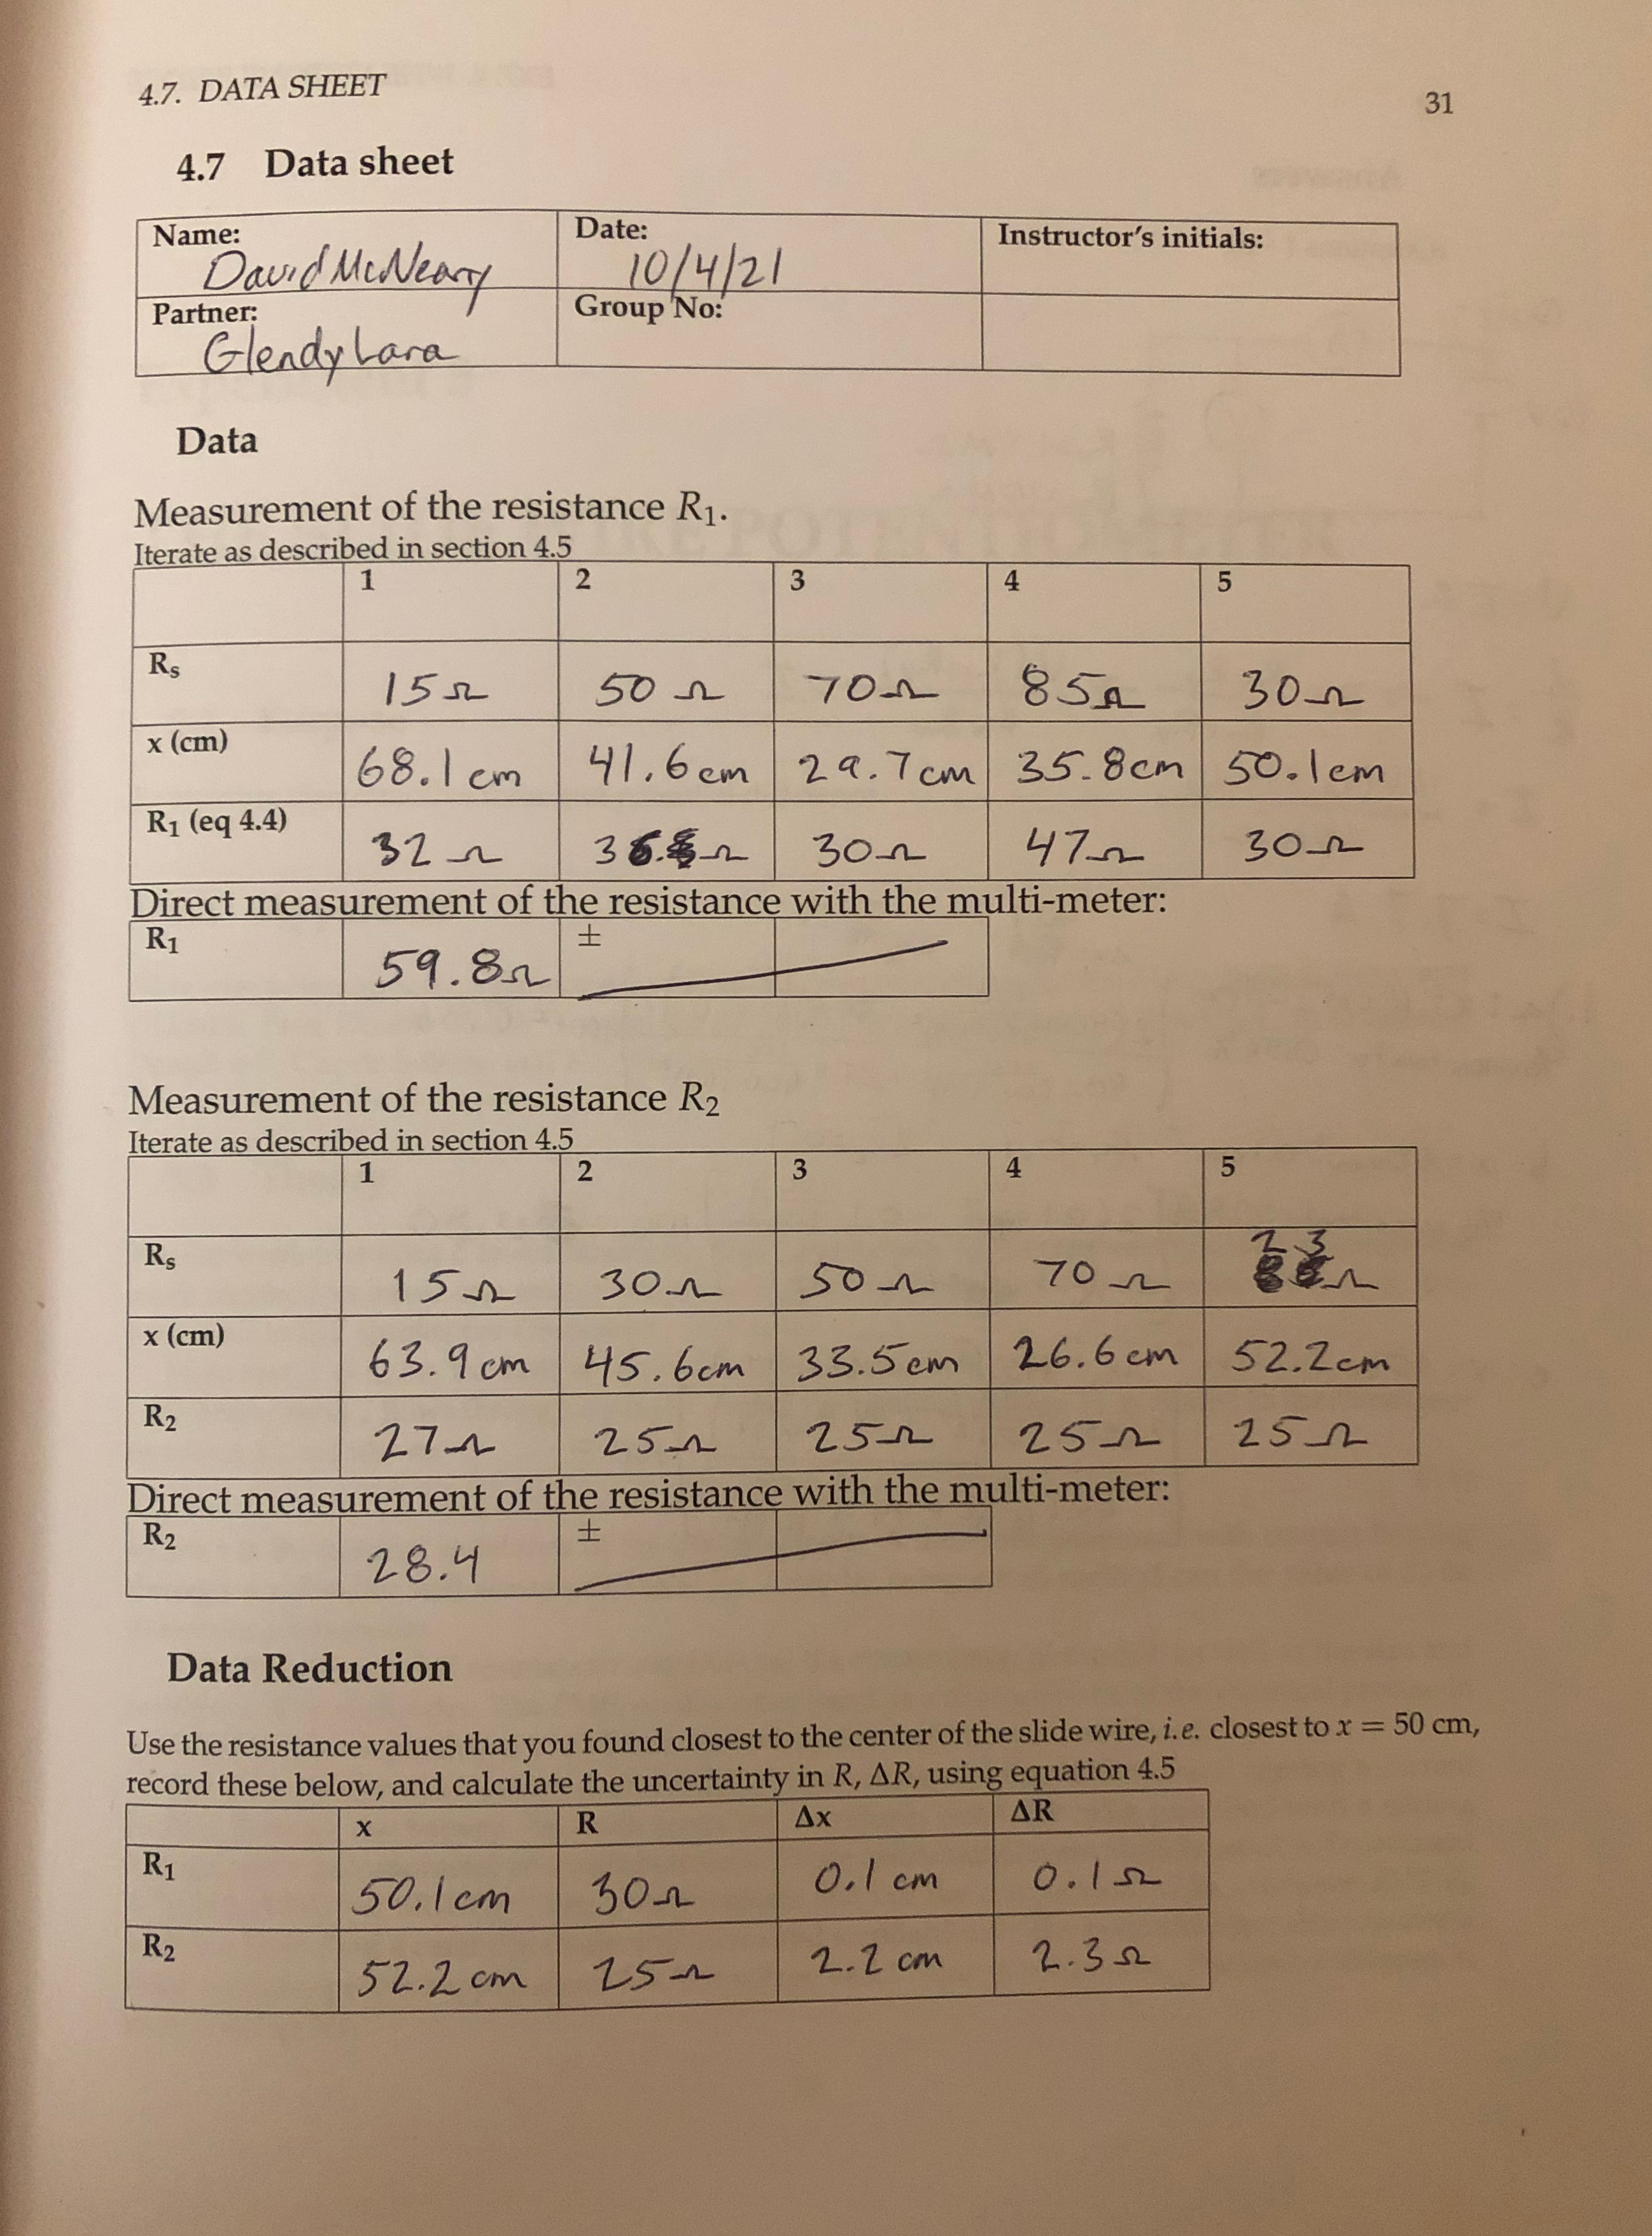 4.7. DATA SHEET 31
4.7 Data sheet
Name: Date: Instructor's initials:
David McNeary 10/4/21
Partner: Group No:
Glendy Lara
Data
Measurement of the resistance R₁.
Iterate as described in section 4.5
1 2 3 4 5
Rs 15Ω 50Ω 70Ω 85Ω 30Ω
x (cm) 68.1cm 41.6cm 29.7cm 35.8cm 50.1cm
R₁ (eq 4.4) 32Ω 36Ω 30Ω 47Ω 30Ω
Direct measurement of the resistance with the multi-meter:
R₁ 59.8Ω ±
Measurement of the resistance R₂
Iterate as described in section 4.5
1 2 3 4 5
Rs 15Ω 30Ω 50Ω 70Ω 23Ω
x (cm) 63.9cm 45.6cm 33.5cm 26.6cm 52.2cm
R₂ 27Ω 25Ω 25Ω 25Ω 25Ω
Direct measurement of the resistance with the multi-meter:
R₂ 28.4 ±
Data Reduction
Use the resistance values that you found closest to the center of the slide wire, i.e. closest to x = 50 cm,
record these below, and calculate the uncertainty in R, ΔR, using equation 4.5
x R Δx ΔR
R₁ 50.1cm 30Ω 0.1 cm 0.1Ω
R₂ 52.2cm 25Ω 2.2 cm 2.3Ω